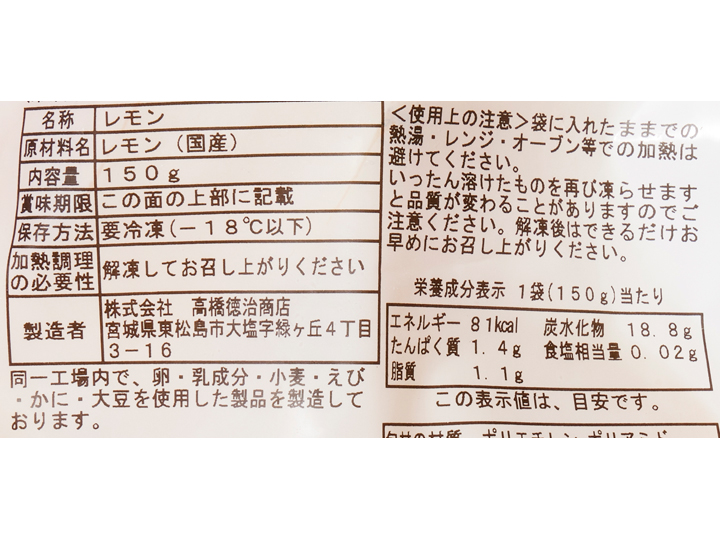 名称 レモン
原材料名 レモン（国産）
内容量 １５０ｇ
賞味期限 この面の上部に記載
保存方法 要冷凍(－１８℃以下)
加熱調理
の必要性 解凍してお召し上がりください
製造者 株式会社　高橋徳治商店
宮城県東松島市大塩字緑ヶ丘４丁目
３－１６
同一工場内で、卵・乳成分・小麦・えび
・かに・大豆を使用した製品を製造して
おります。
＜使用上の注意＞袋に入れたままでの
熱湯・レンジ・オーブン等での加熱は
避けてください。
いったん溶けたものを再び凍らせます
と品質が変わることがありますのでご
注意ください。解凍後はできるだけお
早めにお召し上がりください。
栄養成分表示 1袋(150g)当たり
エネルギー 81kcal 炭水化物 18.8g
たんぱく質 1.4g 食塩相当量 0.02g
脂質 1.1g
この表示値は、目安です。